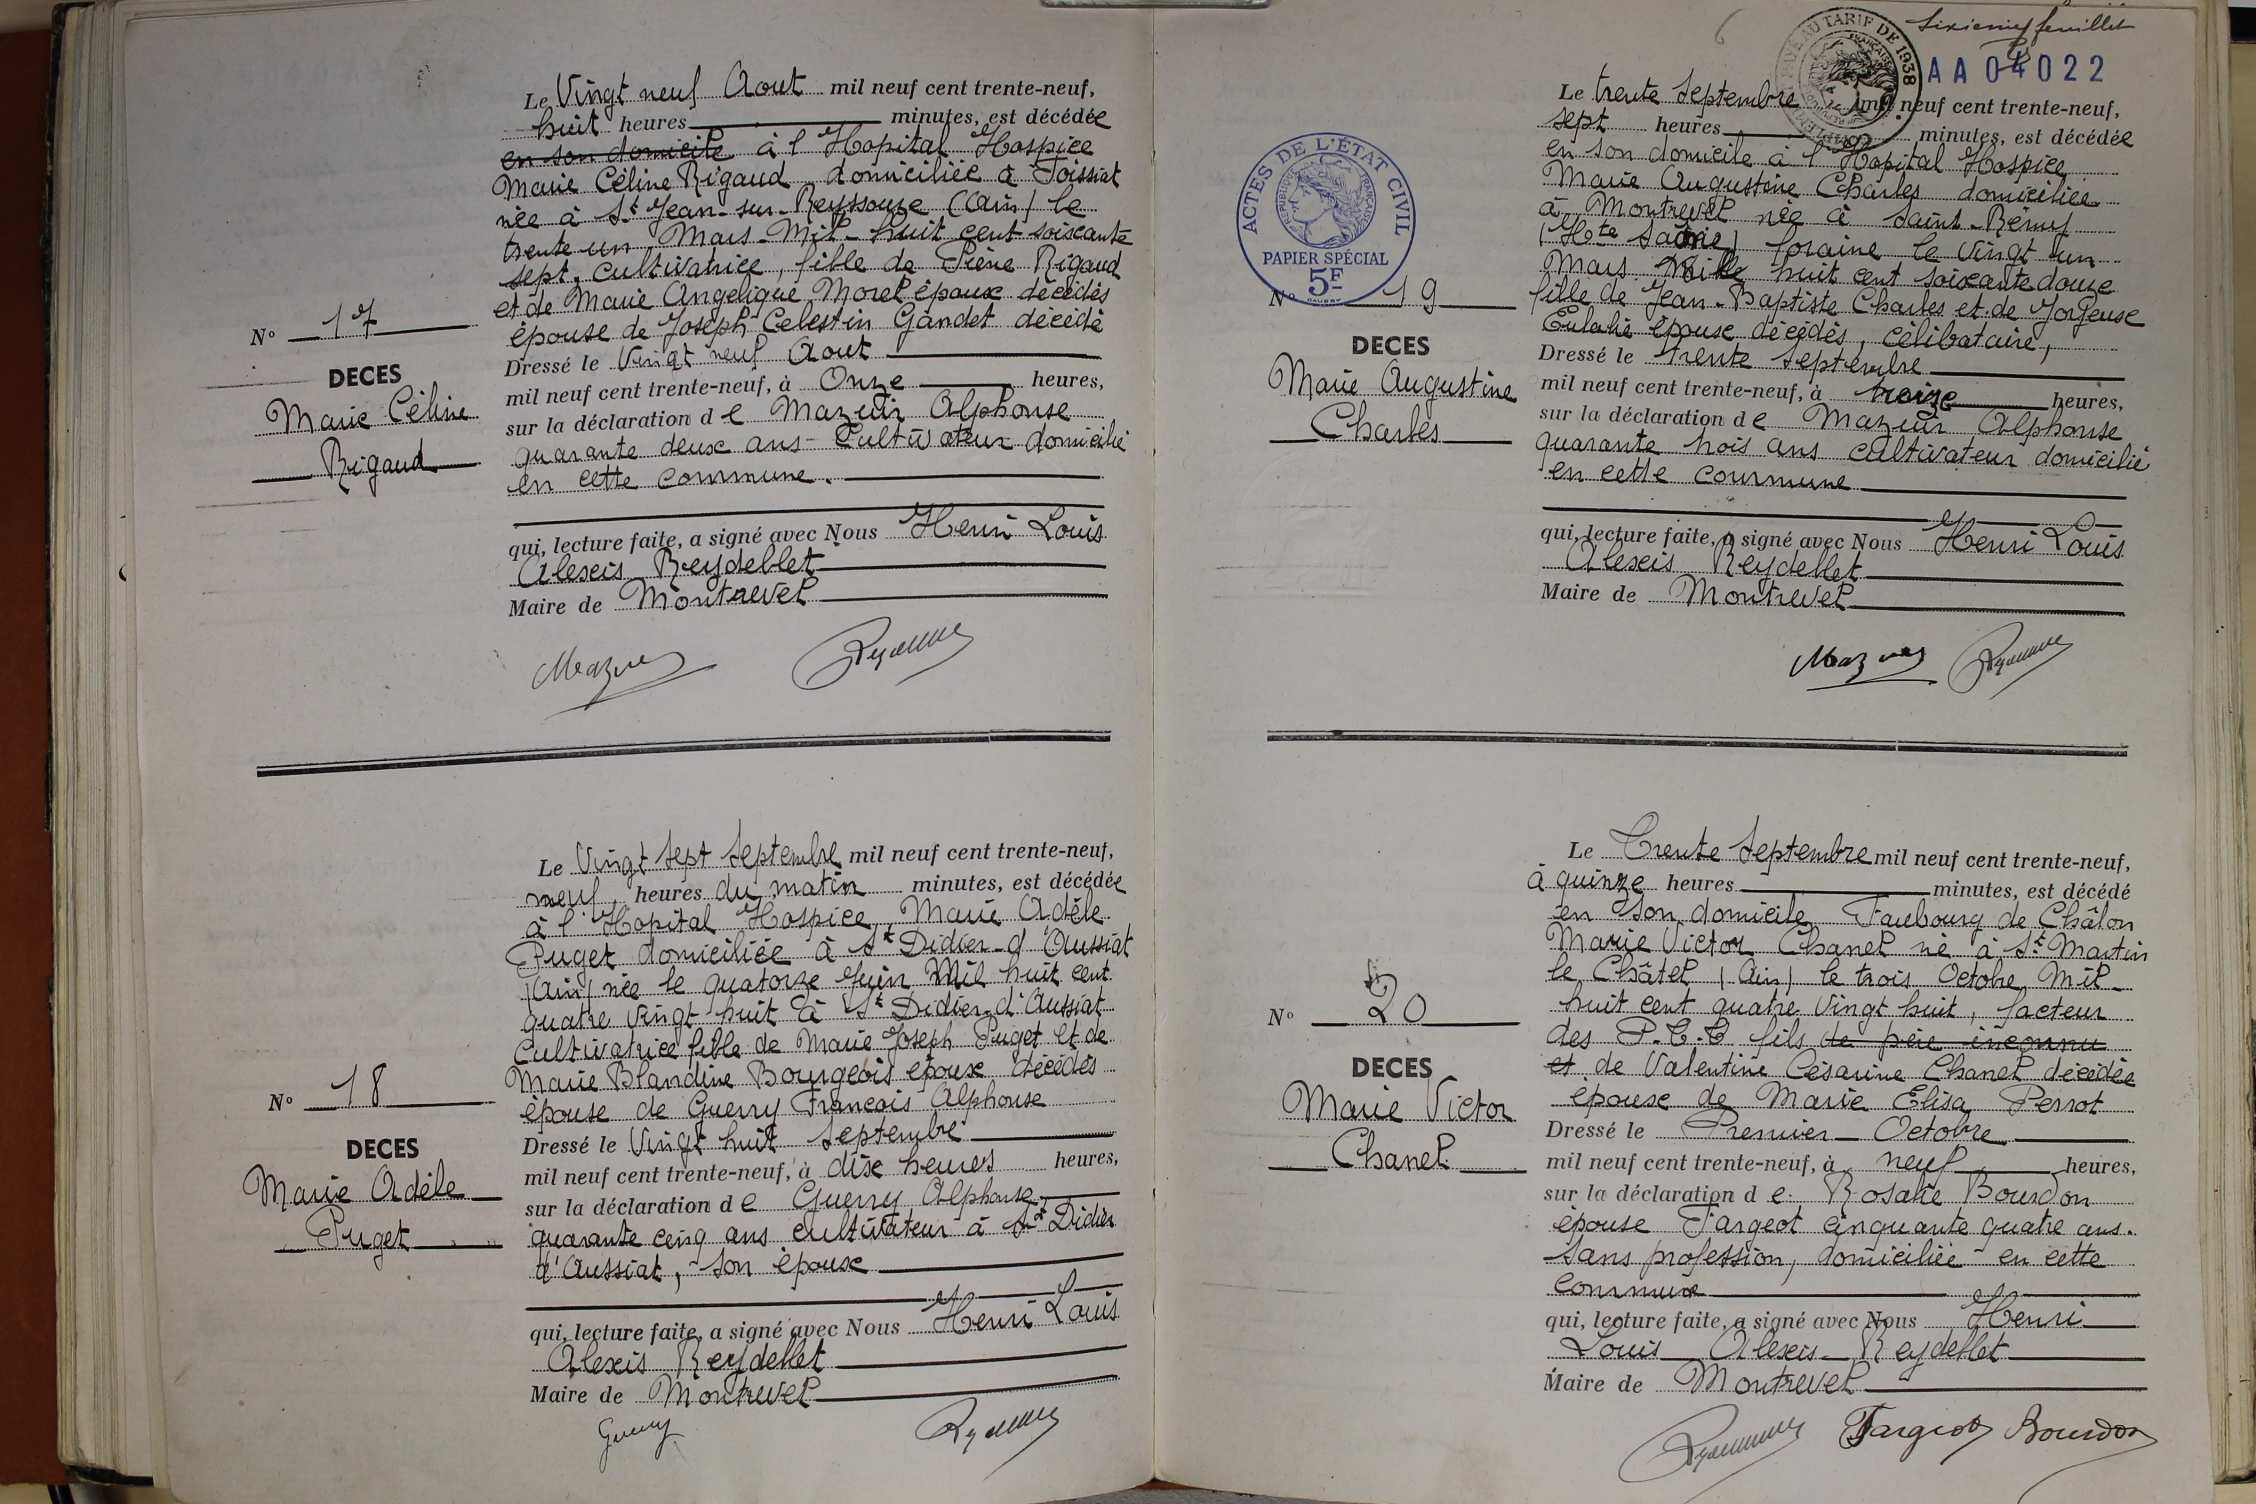 Le Vingt neuf Aout mil neuf cent trente-neuf,
huit heures minutes, est décédée
en son domicile à l'Hopital Hospice
Marie Céline Rigaud domiciliée à Foissiat
née à St Jean-sur-Reyssouze (Ain) le
trente un Mars Mil huit cent soixante
sept, cultivatrice, fille de Pierre Rigaud
et de Marie Angelique Morel époux décédés
épouse de Joseph Celestin Gandet décédé
Dressé le Vingt neuf Aout
mil neuf cent trente-neuf, à Onze heures,
sur la déclaration de Mazuir Alphonse
quarante deux ans Cultivateur domicilié
en cette commune.
qui, lecture faite, a signé avec Nous Henri Louis
Alexis Reydellet
Maire de Montrevel
No 17
DECES
Marie Céline
Rigaud
Le Vingt sept Septembre mil neuf cent trente-neuf,
neuf heures du matin minutes, est décédée
à l'Hopital Hospice Marie Adèle
Puget domiciliée à St Didier-d'Aussiat
(Ain) née le quatorze Juin Mil huit cent
quatre vingt huit à St Didier-d'Aussiat
Cultivatrice fille de Marie Joseph Puget et de
Marie Blandine Bourgeois époux décédés
épouse de Guerry François Alphonse
Dressé le Vingt huit Septembre
mil neuf cent trente-neuf, à dix heures heures,
sur la déclaration de Guerry Alphonse,
quarante cinq ans cultivateur à St Didier
d'Aussiat, son époux
qui, lecture faite, a signé avec Nous Henri Louis
Alexis Reydellet
Maire de Montrevel
Guerry
No 18
DECES
Marie Adèle
Puget
Sixième feuillet
AA 04022
TARIF DE 1938
ACTES DE L'ÉTAT CIVIL
RÉPUBLIQUE FRANÇAISE
PAPIER SPÉCIAL
5F
Le trente Septembre mil neuf cent trente-neuf,
sept heures minutes, est décédée
en son domicile à l'Hopital Hospice
Marie Augustine Charles domiciliée
à Montrevel née à Saint-Rémy
(Hte Saône) foraine le vingt un
Mars Mille huit cent soixante douze
fille de Jean-Baptiste Charles et de
Eulalie époux décédés, célibataire,
Dressé le trente Septembre
mil neuf cent trente-neuf, à treize heures,
sur la déclaration de Mazuir Alphonse
quarante trois ans cultivateur domicilié
en cette commune
qui, lecture faite, a signé avec Nous Henri Louis
Alexis Reydellet
Maire de Montrevel
No 19
DECES
Marie Augustine
Charles
Le Trente Septembre mil neuf cent trente-neuf,
à quinze heures minutes, est décédé
en son domicile Faubourg de Châlon
Marie Victor Chanel né à St Martin
le Châtel (Ain) le trois Octobre Mil
huit cent quatre vingt huit, facteur
des P.T.T. fils de père inconnu
et de Valentine Césarine Chanel décédée
épouse de Marie Elisa Perrot
Dressé le Premier Octobre
mil neuf cent trente-neuf, à neuf heures,
sur la déclaration de Rosalie Bourdon
épouse Fargeot cinquante quatre ans.
sans profession, domiciliée en cette
commune
qui, lecture faite, a signé avec Nous Henri
Louis Alexis Reydellet
Maire de Montrevel
Fargeot Bourdon
No 20
DECES
Marie Victor
Chanel